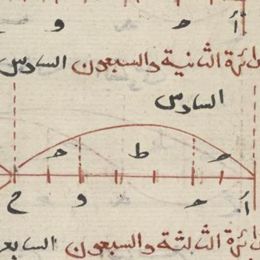 أ ح و
دائرة الثانية والسبعون السادس
السادس
ح ط ح
أ ح و ح
دائرة الثالثة والسبعون السابع